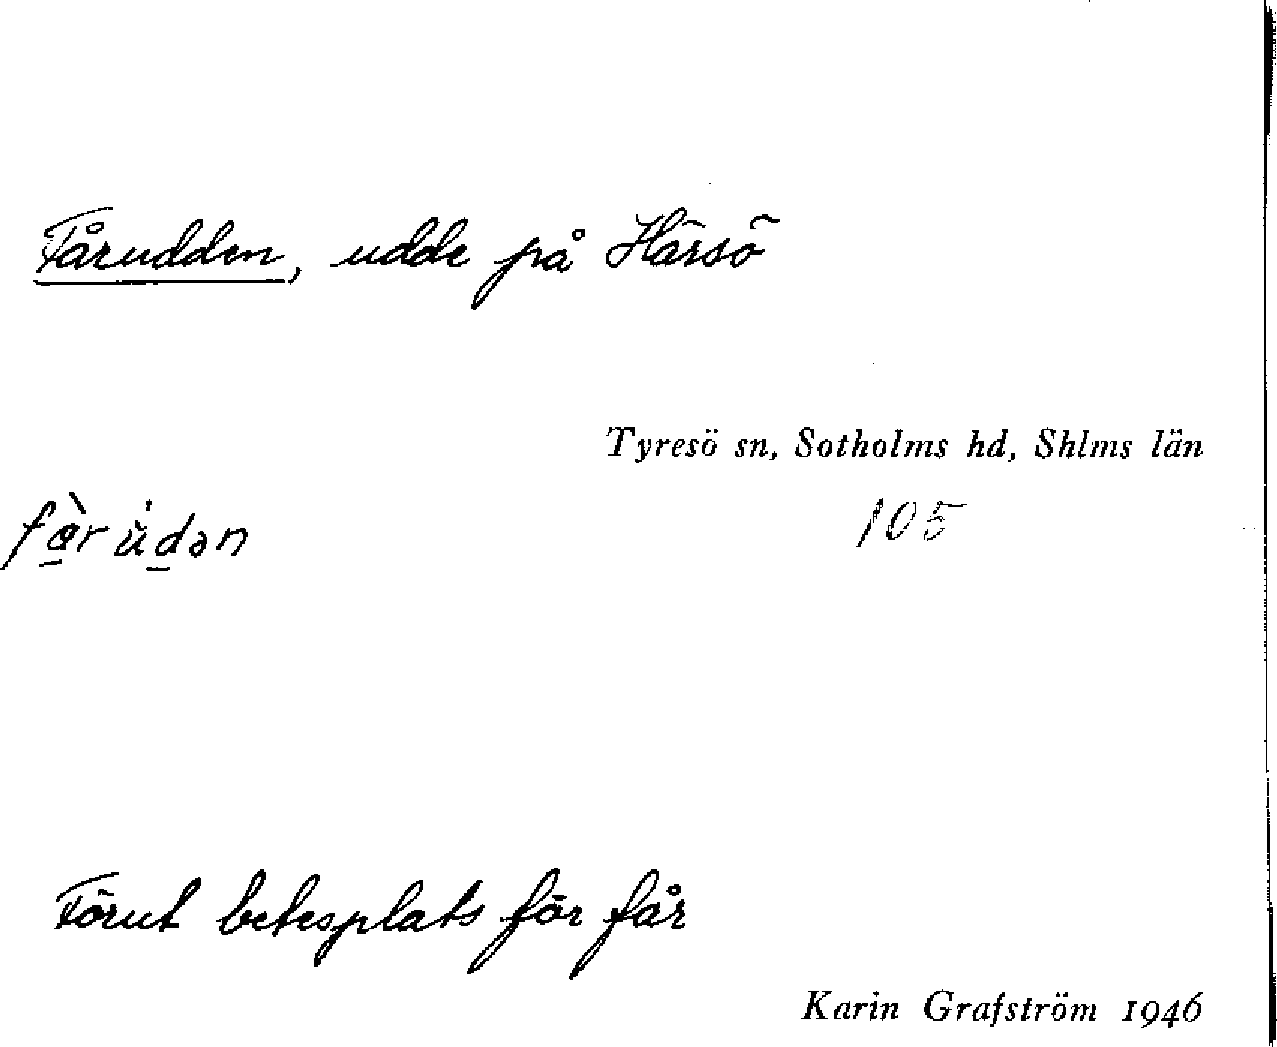 Fårudden, udde på Härsö
Tyresö sn, Sotholms hd, Shlms län
105
Förut betesplats för får
Karin Grafström 1946